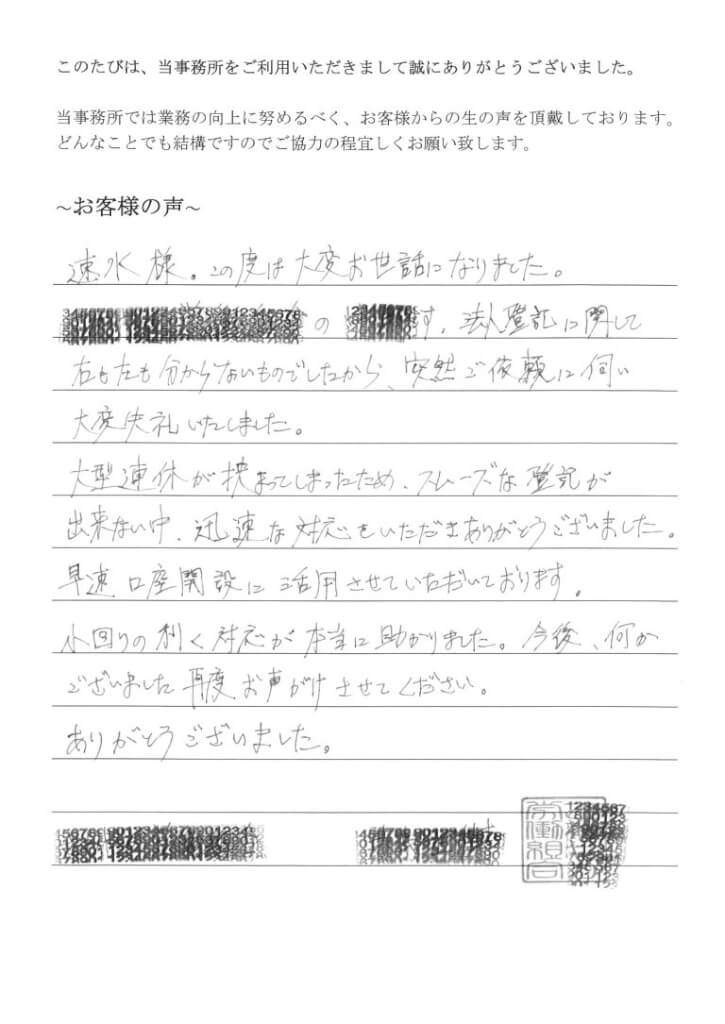 このたびは、当事務所をご利用いただきまして誠にありがとうございました。
当事務所では業務の向上に努めるべく、お客様からの生の声を頂戴しております。
どんなことでも結構ですのでご協力の程宜しくお願い致します。
~お客様の声~
速水様。この度は大変お世話になりました。
の す。法人登記に関して
右も左も分からないものでしたから、突然ご依頼に伺い
大変失礼いたしました。
大型連休が挟まってしまったため、スムーズな登記が
出来ない中、迅速な対応をいただきありがとうございました。
早速口座開設に活用させていただいております。
小回りの利く対応が本当に助かりました。今後、何か
ございました再度お声がけさせてください。
ありがとうございました。